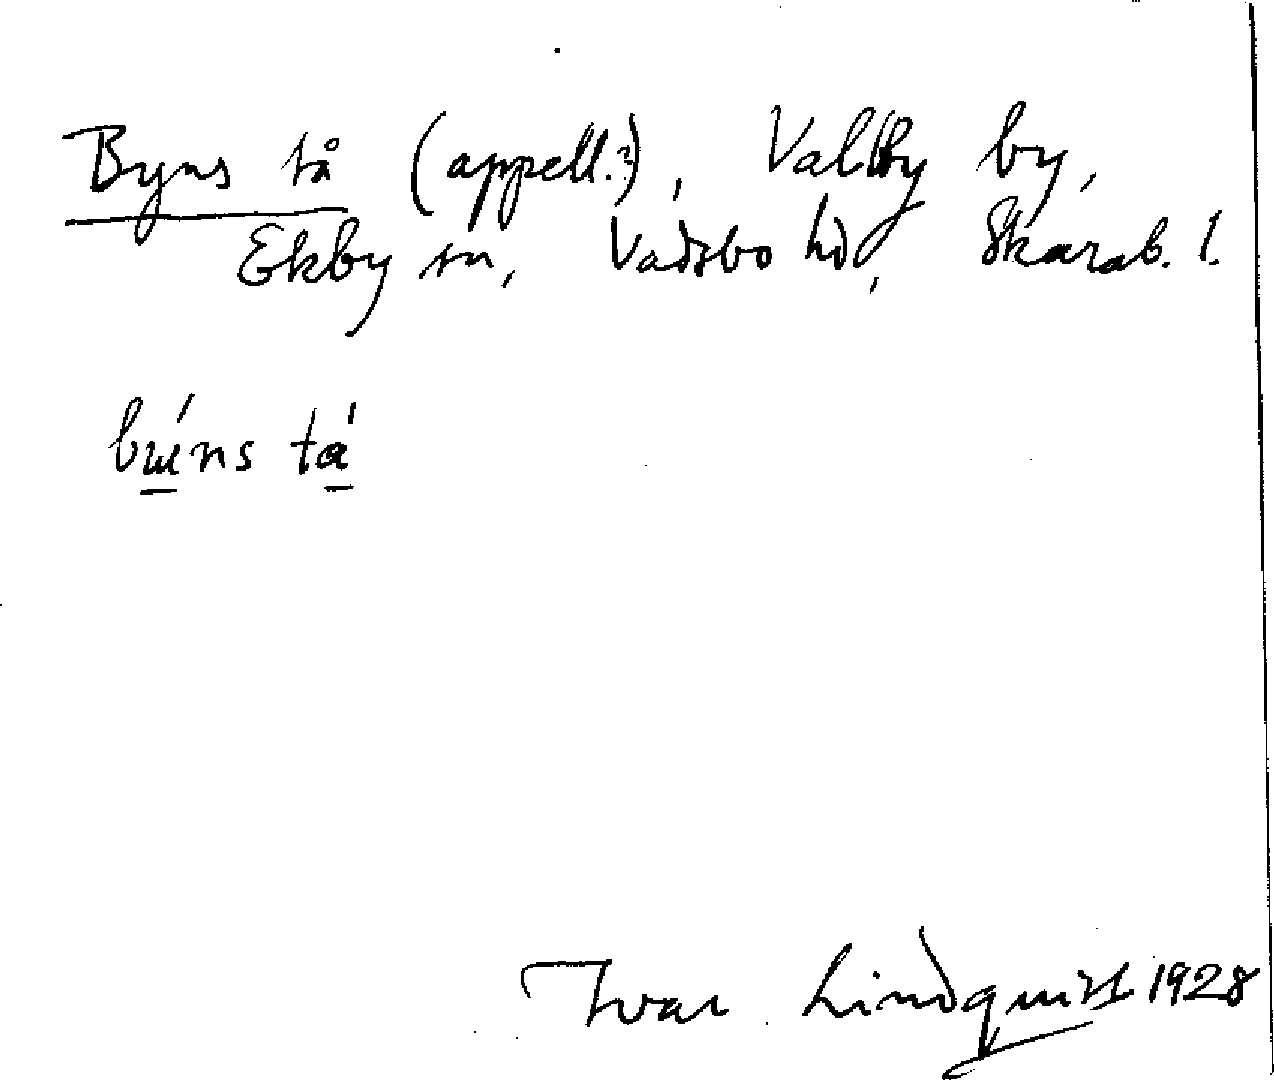 Byns tå (appell.?), Vallby by,
Ekby sn, Vadsbo hd, Skarab. l.
bɯ́ns tá
Ivar Lindquist 1928